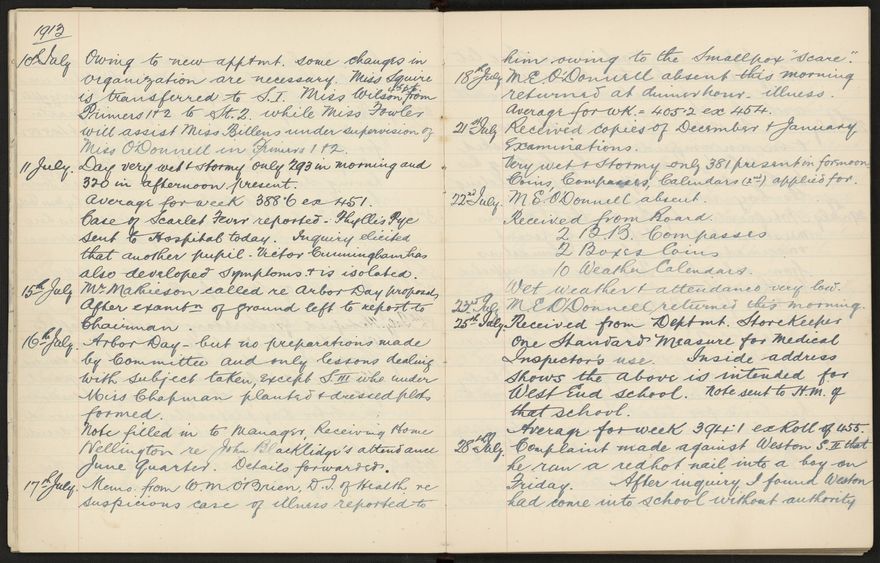 1913
10th July Owing to new apptmt. some changes in
organization are necessary. Miss Squire
is transferred to S.I. Miss Wilson from
Primers 1+2 to St. 2. while Miss Fowler
will assist Miss Billens under supervision of
Miss O'Donnell in Primers 1+2.
11 July. Day very wet & stormy only 293 in morning and
320 in afternoon present.
Average for week 388.6 ex 451.
Case of Scarlet Fever reported - Phyllis Pye
sent to Hospital today. Inquiry elicited
that another pupil - Victor Cunningham has
also developed symptoms & is isolated.
15th July Mr. Makieson called re Arbor Day proposals
After examtn of ground left to report to
Chairman.
16th July. Arbor Day - but no preparations made
by Committee and only lessons dealing
with subject taken, except S III who under
Miss Chapman planted & dressed plots
formed.
Note filled in to Manager, Receiving Home
Wellington re John Blacklidge's attendance
June Quarter. Details forwarded.
17th July. Memo. from W.M. O'Brien, D.I. of Health re
suspicious case of illness reported to
him owing to the Smallpox "scare".
18th July M.E. O'Donnell absent this morning
returned at dinner hour - illness.
Average for wk. = 405.2 ex 454.
21st July Received copies of December & January
Examinations.
Very wet & stormy only 381 present in forenoon
Coins, Compasses, Calendars (2nd) applied for.
22nd July. M.E. O'Donnell absent.
Received from Board.
2 B.B. Compasses
2 Boxes Coins
10 Weather Calendars.
Wet weather & attendance very low.
23rd July M.E. O'Donnell returned this morning.
25th July. Received from Deptmt. Storekeeper
One Standard Measure for Medical
Inspector's use. Inside address
shows the above is intended for
West End school. Note sent to H.M. of
that school.
Average for week 394.1 ex Roll of 455.
28th July. Complaint made against Weston S. II that
he ran a redhot nail into a boy on
Friday. After inquiry I found Weston
had come into school without authority